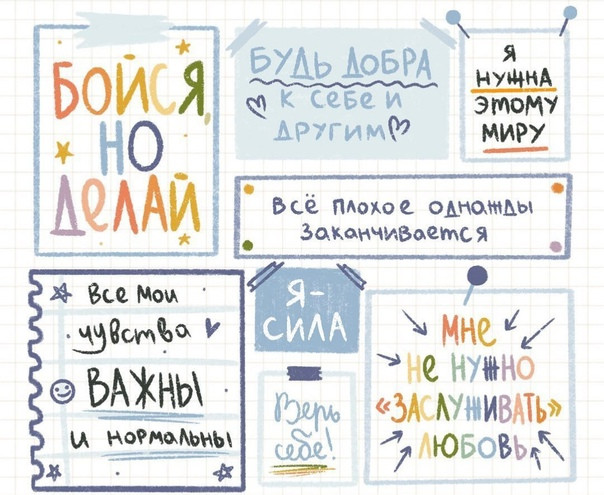 БОЙСЯ,
НО
ДЕЛАЙ
БУДЬ ДОБРА
К СЕБЕ И
ДРУГИМ
Я
НУЖНА
ЭТОМУ
МИРУ
Всё плохое однажды
Заканчивается
Все мои
чувства
ВАЖНЫ
и нормальны
Я-
СИЛА
Верь
себе!
Мне
не нужно
«ЗАСЛУЖИВАТЬ»
ЛЮБОВЬ